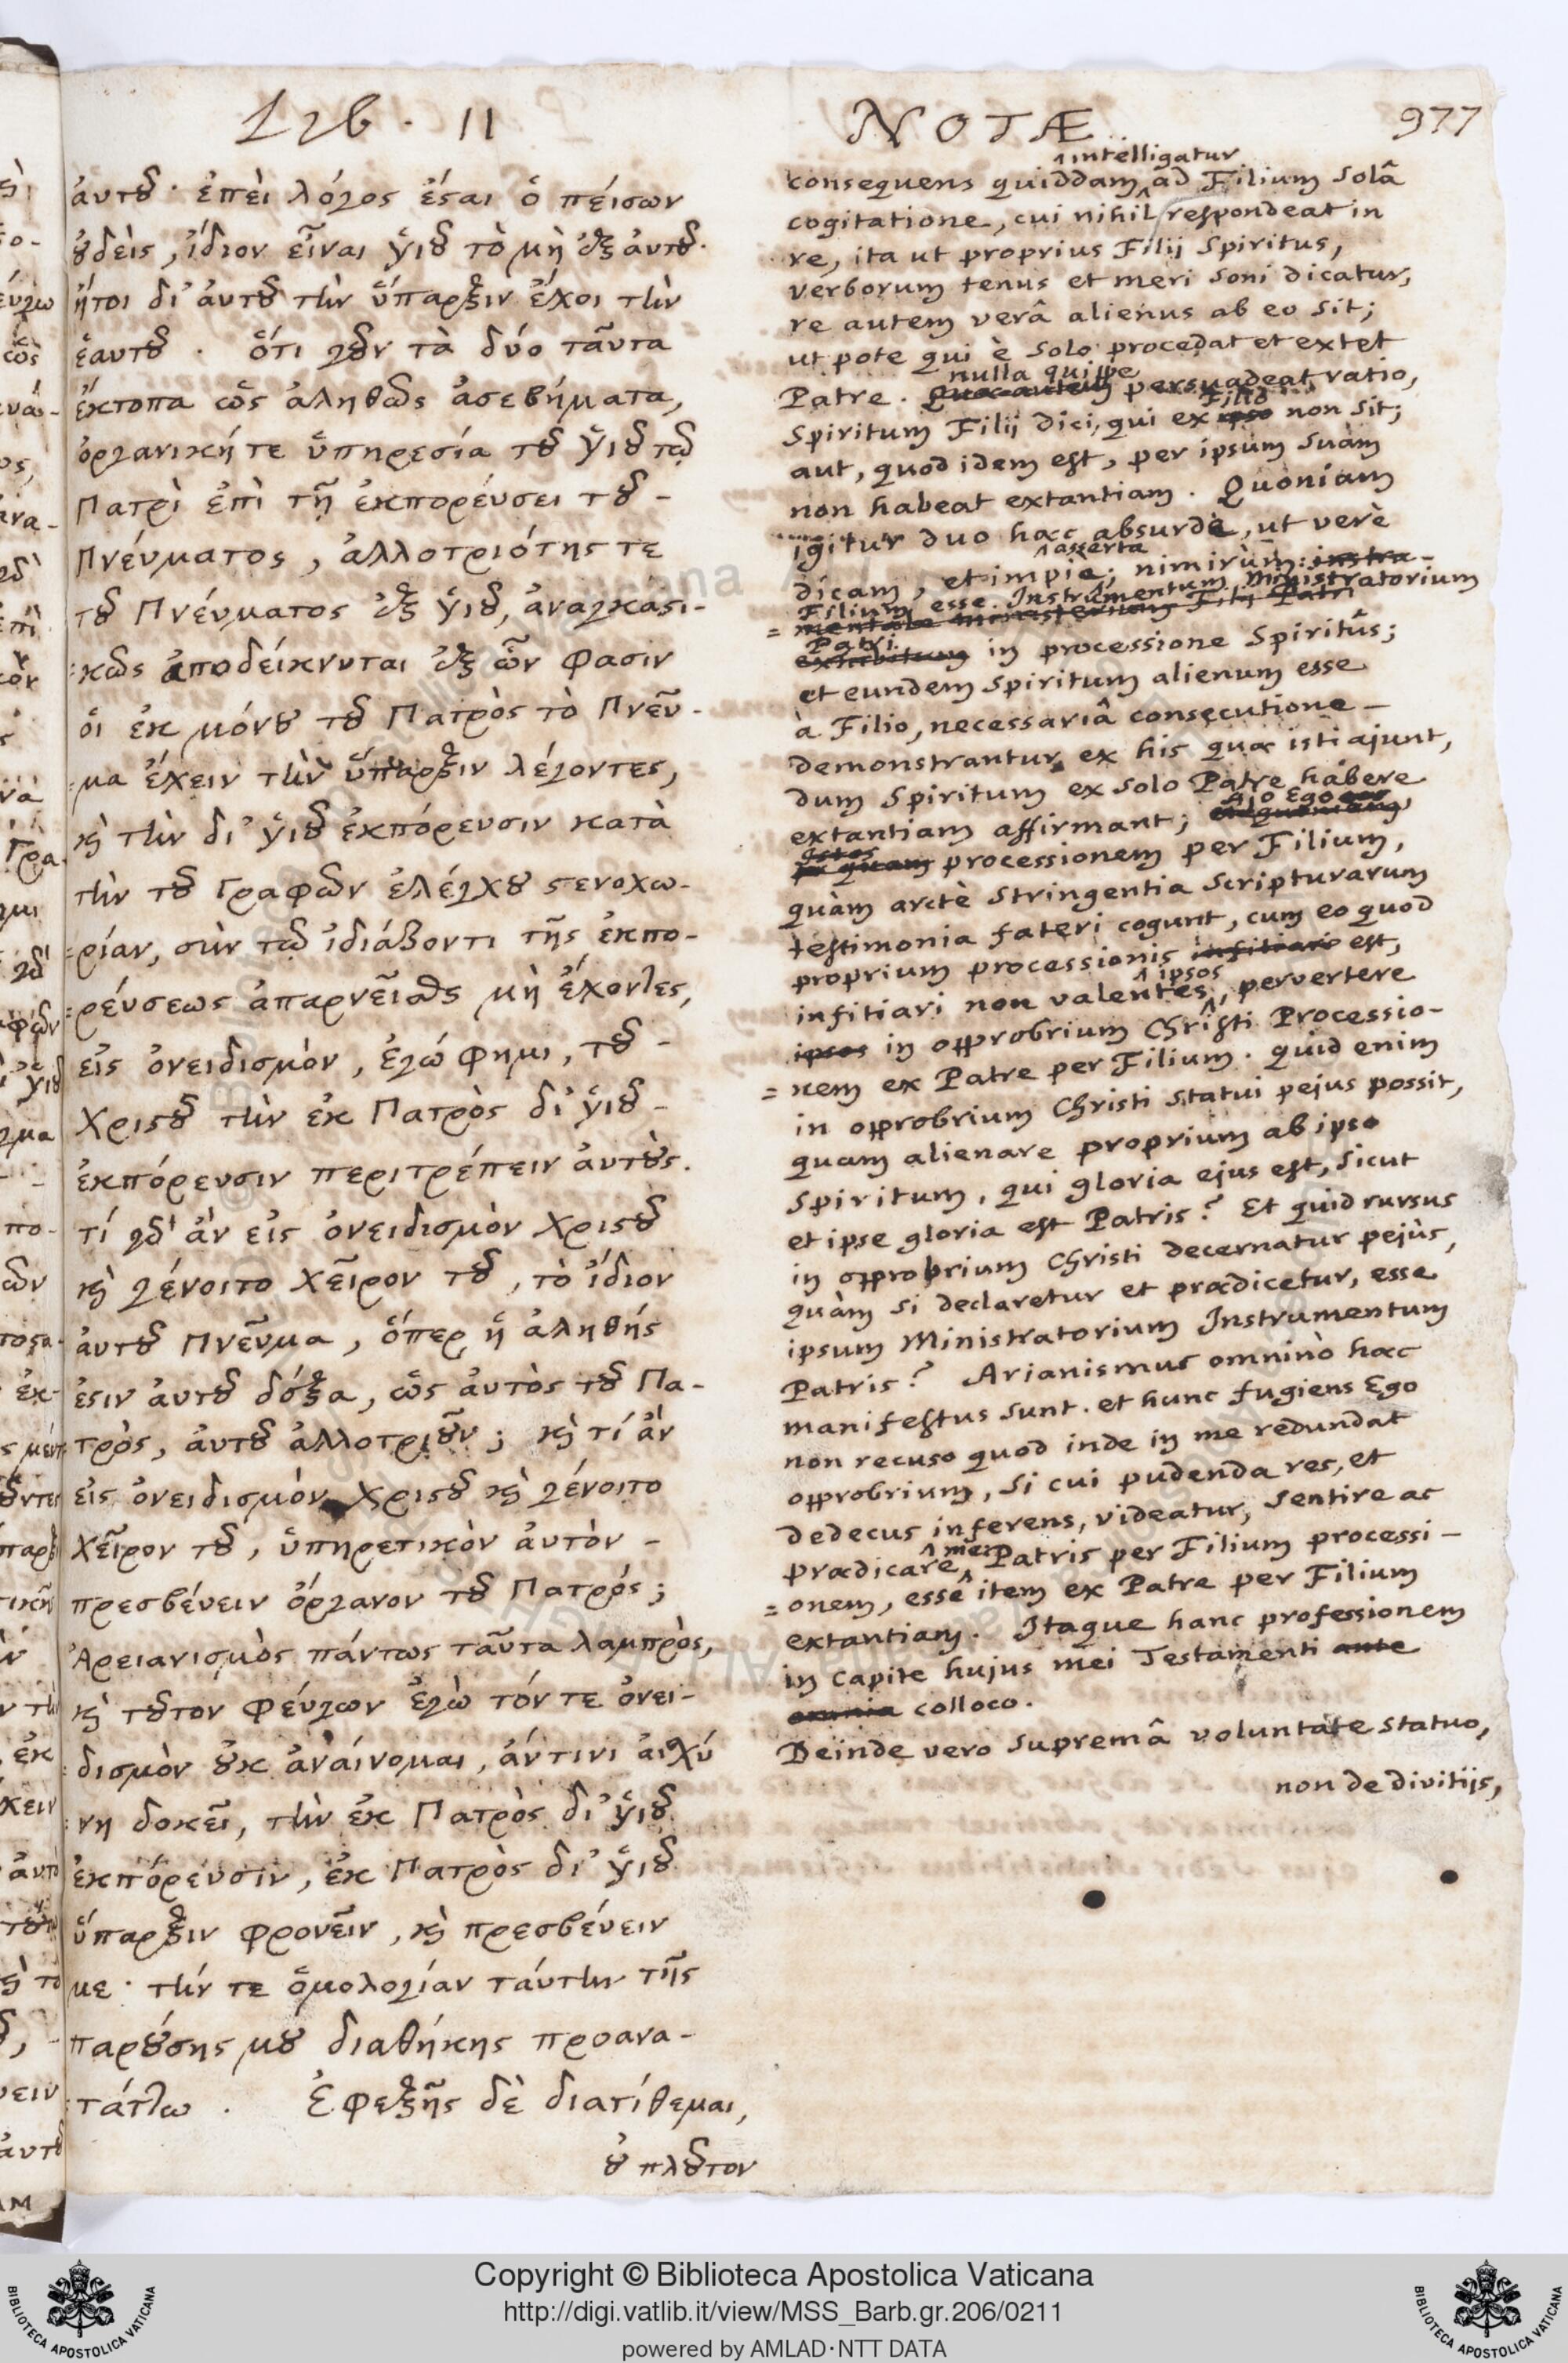 Lib. II
ἀυτοῦ· ἐπεὶ λόγος ἔσται ὁ πείσων
ουδεὶς, ἴδιον εἶναι ὑιοῦ τὸ μὴ ἐξ ἀυτοῦ·
ἤτοι δι' ἀυτοῦ τὴν ὕπαρξιν ἔχοι τὴν
ἑαυτοῦ. ὅτι γοῦν τὰ δύο ταῦτα
ἔκτοπα ὡς ἀληθῶς ἀσεβήματα,
ὀργανική τε ὑπηρεσία τοῦ ὑιοῦ τῷ
Πατρὶ ἐπὶ τῇ ἐκπορεύσει τοῦ -
Πνέυματος, ἀλλοτριότης τε
τοῦ Πνέυματος ἐξ ὑιοῦ, ἀναγκασι-
:κῶς ἀποδείκνυται ἐξ ὧν φασιν
ὁι ἐκ μόνου τοῦ Πατρὸς τὸ Πνεῦ-
:μα ἔχειν τὴν ὕπαρξιν λέγοντες,
κὶ τὴν δι' ὑιοῦ ἐκπόρευσιν κατὰ
τὴν τοῦ Γραφῶν ἐλέγχου στενοχω-
:ρίαν, σὺν τῷ ἰδιάζοντι τῆς ἐκπο-
:ρέυσεως ἀπαρνεῖσθαι μὴ ἔχοντες,
εἰς ὀνειδισμὸν, ἐγώ φημι, τοῦ -
Χριστοῦ τὴν ἐκ Πατρὸς δι' ὑιοῦ -
ἐκπόρευσιν περιτρέπειν ἀυτοὺς.
τί γδ' ἂν εἰς ὀνειδισμὸν Χριστοῦ
κὶ γένοιτο χεῖρον τοῦ, τὸ ἴδιον
ἀυτοῦ Πνεῦμα, ὅπερ ἡ ἀληθής
ἐστιν ἀυτοῦ δόξα, ὡς ἀυτὸς τοῦ Πα-
τρὸς, ἀυτοῦ ἀλλοτριοῦν; κὶ τί ἂν
εἰς ὀνειδισμὸν Χριστοῦ κὶ γένοιτο
χεῖρον τοῦ, ὑπηρετικὸν ἀυτὸν -
πρεσβέυειν ὄργανον τοῦ Πατρός;
Ἀρειανισμὸς πάντως ταῦτα λαμπρὸς,
κὶ τοῦτον φέυγων ἐγὼ τόν τε ὀνει-
:δισμὸν ουκ ἀνάινομαι, ἄντινι αἰσχύ
:νη δοκεῖ, τὴν ἐκ Πατρὸς δι' ὑιοῦ
ἐκπόρευσιν, ἐκ Πατρὸς δι' ὑιοῦ
ὕπαρξιν φρονεῖν, κὶ πρεσβέυειν
με· τήν τε ὁμολογίαν ταύτην τῆς
παρούσης μου διαθήκης προανα-
:τάττω. Ἐφεξῆς δὲ διατίθεμαι,
ου πλοῦτον
NOTÆ 977
intelligatur
consequens quiddam ad Filium solâ
cogitatione, cui nihil respondeat in
re, ita ut proprius Filij Spiritus,
verborum tenus et meri soni dicatur,
re autem verâ alienus ab eo sit;
ut pote qui è solo procedat et extet
nulla quippe
Patre. Quæ autem persuadeat ratio,
Filio
Spiritum Filij dici, qui ex ipso non sit;
aut, quod idem est, per ipsum suam
non habeat extantiam. Quoniam
igitur duo hæc absurdè, ut verè
asserta
dicam, et impiè; nimirùm: instru-
Filium esse Instrumentum Ministratorium
=mentale ministerium Filij Patri
Patri
exhibitum in processione Spiritûs;
et eundem Spiritum alienum esse
à Filio, necessariâ consecutione -
demonstrantur ex his quæ isti ajunt,
dum Spiritum ex solo Patre habere
ajo Ego
extantiam affirmant;
istos
processionem per Filium,
quàm arctè stringentia Scripturarum
testimonia fateri cogunt, cum eo quod
proprium processionis infitiari est,
ipsos
infitiari non valentes, pervertere
ipsos in opprobrium Christi Processio-
=nem ex Patre per Filium. quid enim
in opprobrium Christi statui pejus possit,
quam alienare proprium ab ipso
Spiritum, qui gloria ejus est, sicut
et ipse gloria est Patris? Et quid rursus
in opprobrium Christi decernatur pejùs,
quàm si declaretur et prædicetur, esse
ipsum Ministratorium Instrumentum
Patris? Arianismus omninò hæc
manifestus sunt. et hunc fugiens Ego
non recuso quod inde in me redundat
opprobrium, si cui pudenda res, et
dedecus inferens, videatur, sentire ac
mei
prædicare Patris per Filium processi-
=onem, esse item ex Patre per Filium
extantiam. Itaque hanc professionem
in capite hujus mei Testamenti ante
omnia colloco.
Deinde vero supremâ voluntate statuo,
non de divitijs,
Copyright © Biblioteca Apostolica Vaticana
http://digi.vatlib.it/view/MSS_Barb.gr.206/0211
powered by AMLAD·NTT DATA
BIBLIOTECA APOSTOLICA VATICANA
BIBLIOTECA APOSTOLICA VATICANA